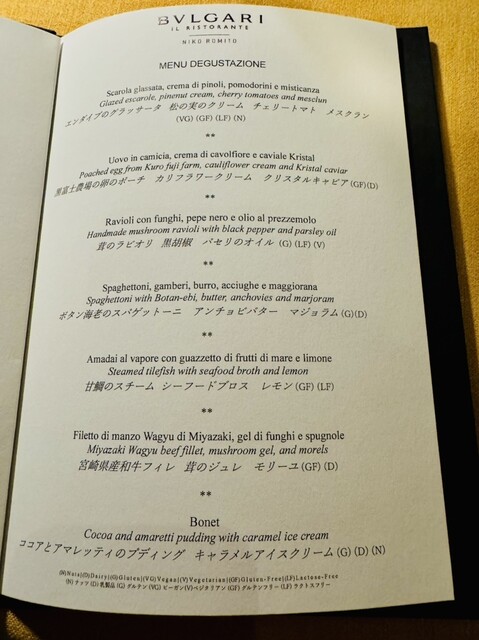 BVLGARI
IL RISTORANTE
NIKO ROMITO
MENU DEGUSTAZIONE
Scarola glassata, crema di pinoli, pomodorini e misticanza
Glazed escarole, pinenut cream, cherry tomatoes and mesclun
エンダイブのグラッサータ 松の実のクリーム チェリートマト メスクラン
(VG) (GF) (LF) (N)
**
Uovo in camicia, crema di cavolfiore e caviale Kristal
Poached egg from Kuro fuji farm, cauliflower cream and Kristal caviar
黒富士農場の卵のポーチ カリフラワークリーム クリスタルキャビア(GF)(D)
**
Ravioli con funghi, pepe nero e olio al prezzemolo
Handmade mushroom ravioli with black pepper and parsley oil
茸のラビオリ 黒胡椒 パセリのオイル (G) (LF) (V)
**
Spaghettoni, gamberi, burro, acciughe e maggiorana
Spaghettoni with Botan-ebi, butter, anchovies and marjoram
ボタン海老のスパゲットーニ アンチョビバター マジョラム(G)(D)
**
Amadai al vapore con guazzetto di frutti di mare e limone
Steamed tilefish with seafood broth and lemon
甘鯛のスチーム シーフードブロス レモン(GF) (LF)
**
Filetto di manzo Wagyu di Miyazaki, gel di funghi e spugnole
Miyazaki Wagyu beef fillet, mushroom gel, and morels
宮崎県産和牛フィレ 茸のジュレ モリーユ(GF) (D)
**
Bonet
Cocoa and amaretti pudding with caramel ice cream
ココアとアマレッティのプディング キャラメルアイスクリーム(G) (D) (N)
(N)Nuts|(D)Dairy|(G)Gluten|(VG)Vegan|(V)Vegetarian|(GF)Gluten-Free|(LF)Lactose-Free
(N) ナッツ (D) 乳製品 (G) グルテン (VG) ビーガン(V)ベジタリアン (GF) グルテンフリー (LF) ラクトスフリー